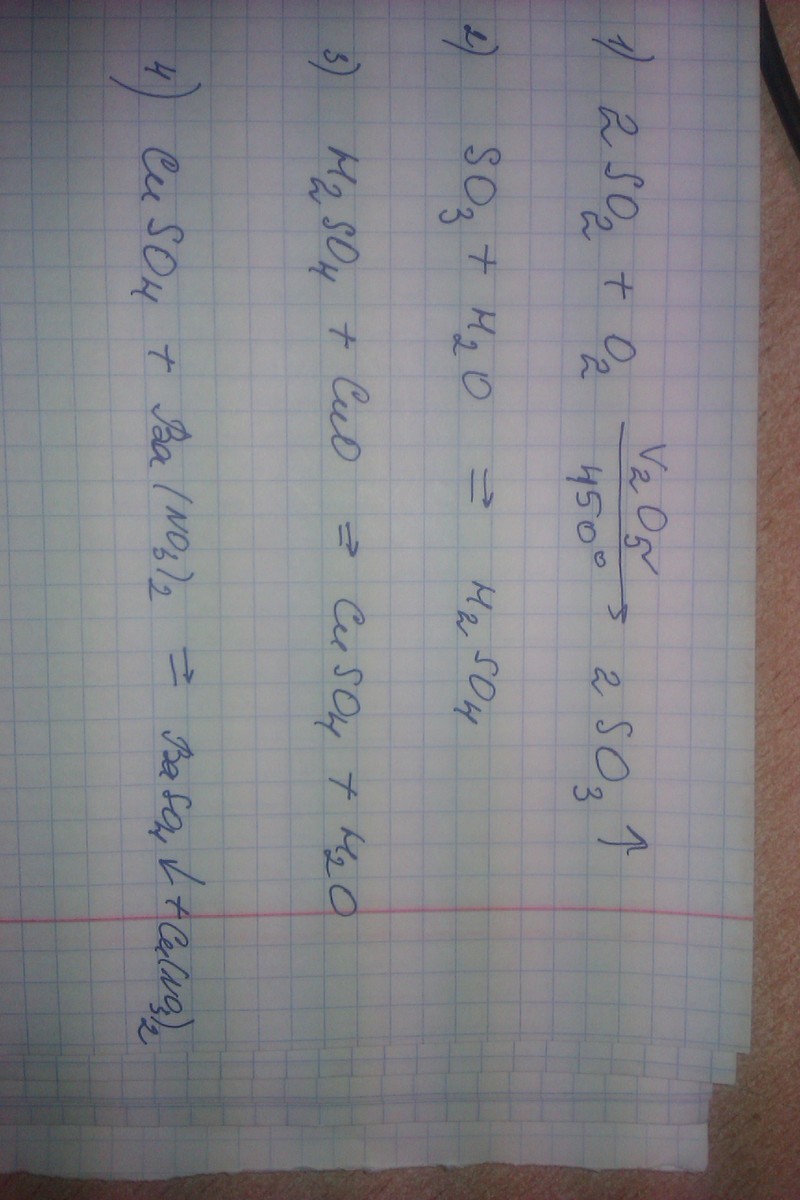 1) 2SO₂ + O₂ →(V₂O₅, 450°) 2SO₃ ↑
2) SO₃ + H₂O = H₂SO₄
3) H₂SO₄ + CuO = CuSO₄ + H₂O
4) CuSO₄ + Ba(NO₃)₂ = BaSO₄↓ + Cu(NO₃)₂